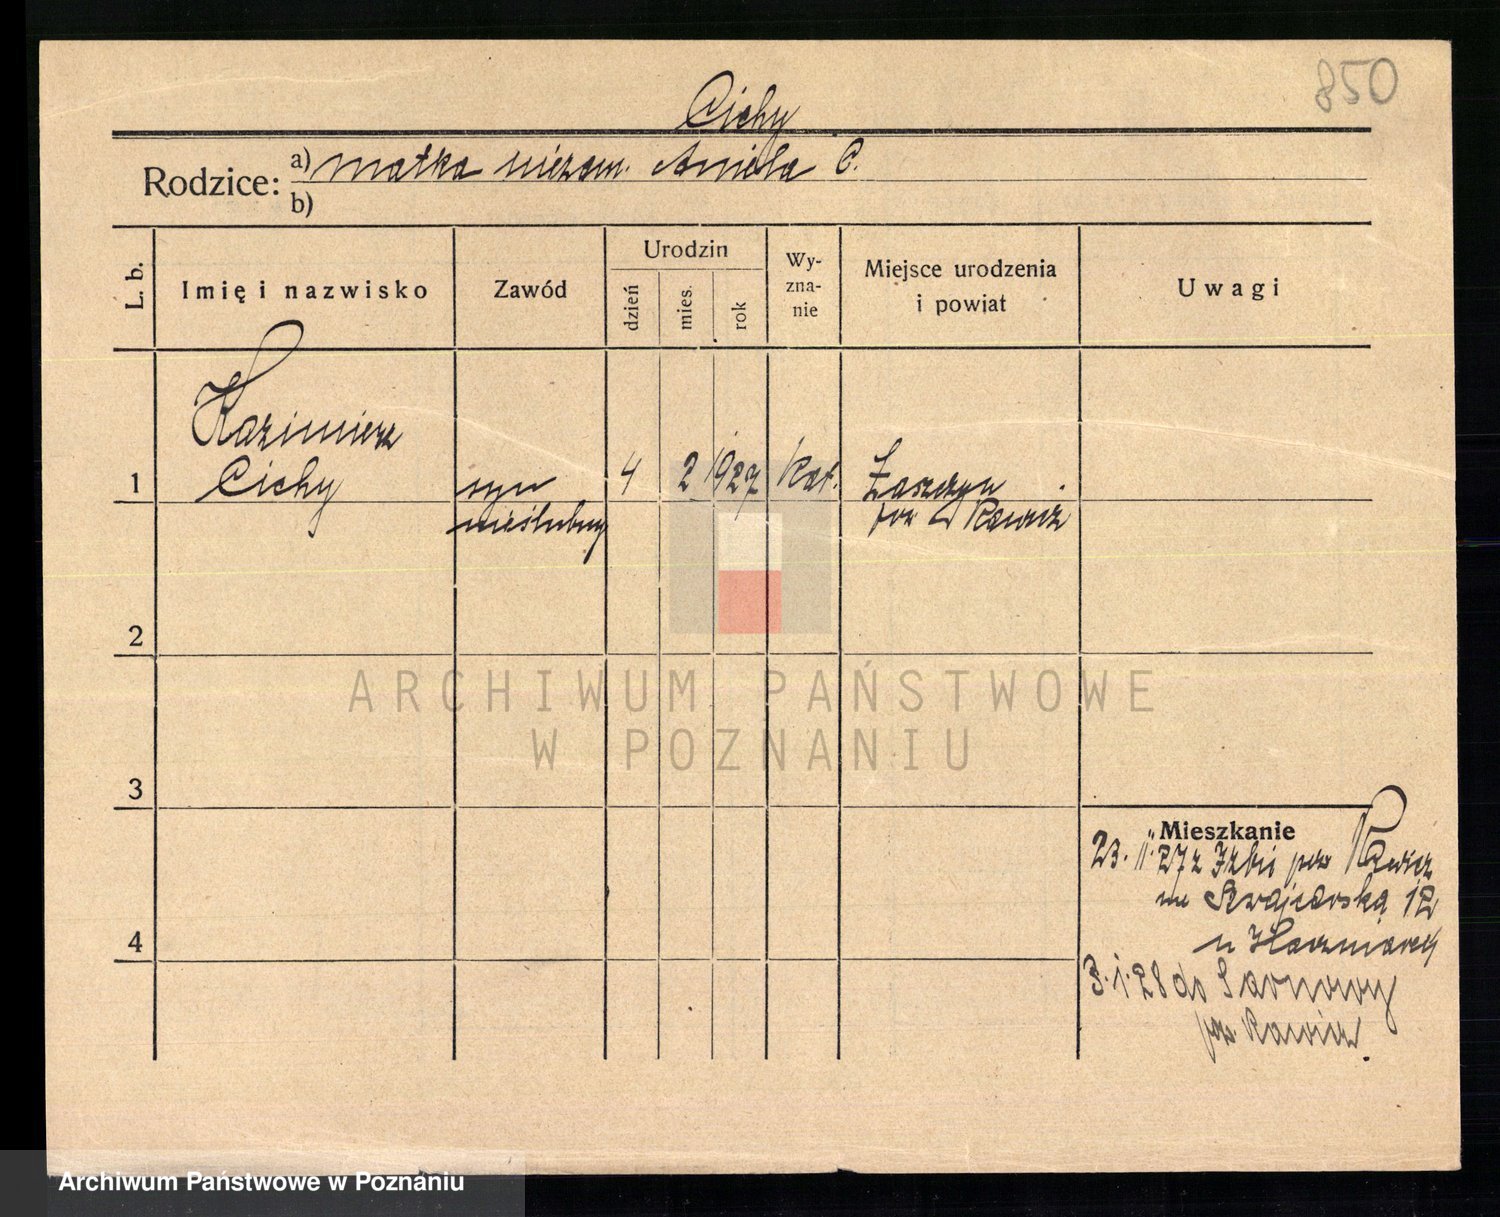 850
Cichy
Rodzice: a) matka niezam. Aniela C.
b)
L. b.
Imię i nazwisko
Zawód
Urodzin
dzień
mies.
rok
Wy-
zna-
nie
Miejsce urodzenia
i powiat
Uwagi
Kazimierz
1 Cichy syn 4 2 1927 Kat.
nieślubny pow Rawicz
2
ARCHIWUM PAŃSTWOWE
W POZNANIU
3
Mieszkanie
23. II. 27 z Izbic pow Rawicz
12
4
3.1.28 do Sarnowy
pow. Rawicz
Archiwum Państwowe w Poznaniu